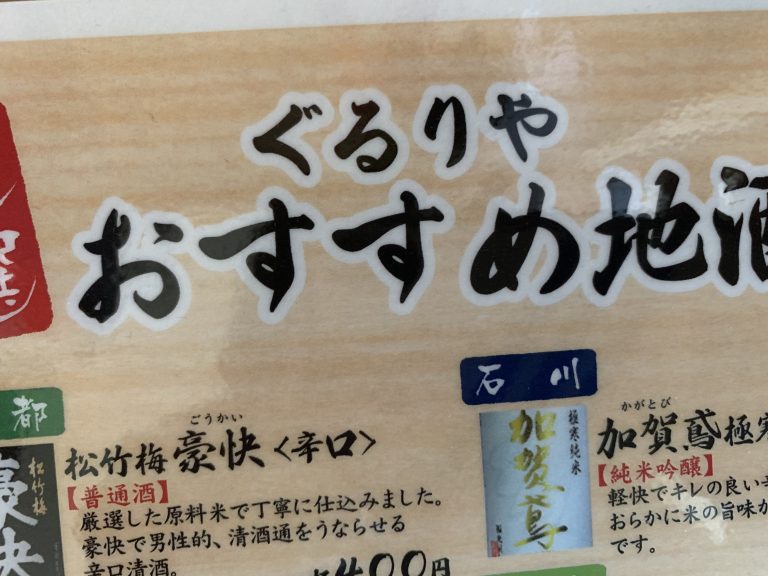 ぐるりや
おすすめ地酒
都
石川
ごうかい
松竹梅 豪快〈辛口〉
【普通酒】
厳選した原料米で丁寧に仕込みました。
豪快で男性的、清酒通をうならせる
辛口清酒。
400円
松竹梅
豪快
極寒純米
加賀鳶
かがとび
加賀鳶極寒
【純米吟醸】
軽快でキレの良い
おらかに米の旨味が
です。